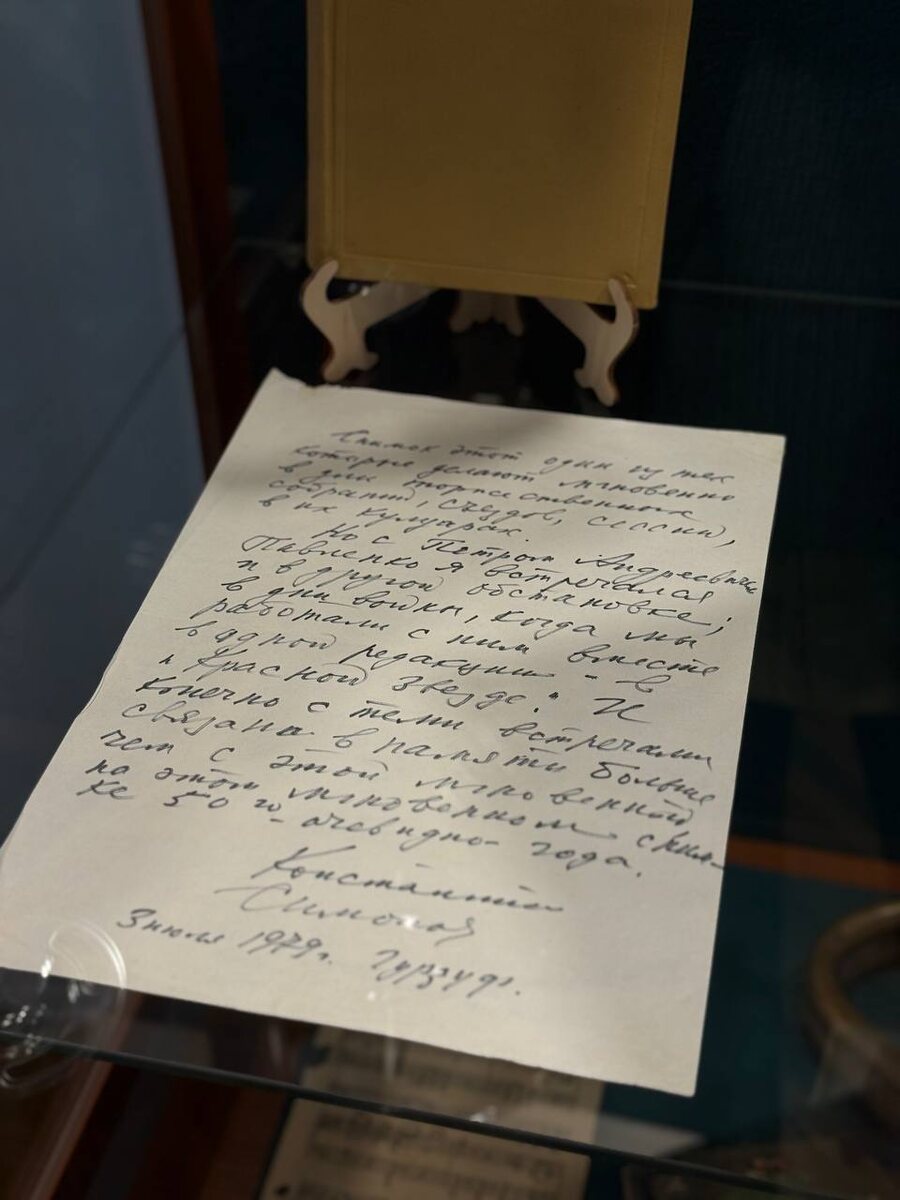 Снимок этот один из тех
которые делают мгновенно
в дни торжественных
собраний, съездов, сессий,
в их кулуарах.
Но с Петром Андреевичем
Павленко я встречался
и в другой обстановке;
в дни войны, когда мы
работали с ним вместе
в одной редакции – в
"Красной звезде." И
конечно с теми встречами
связана в памяти больше
чем с этой мгновенной
на этом мгновенном сним-
ке 50го – очевидно – года.
Константин
Симонов
3 июля 1979г. Гурзуф.